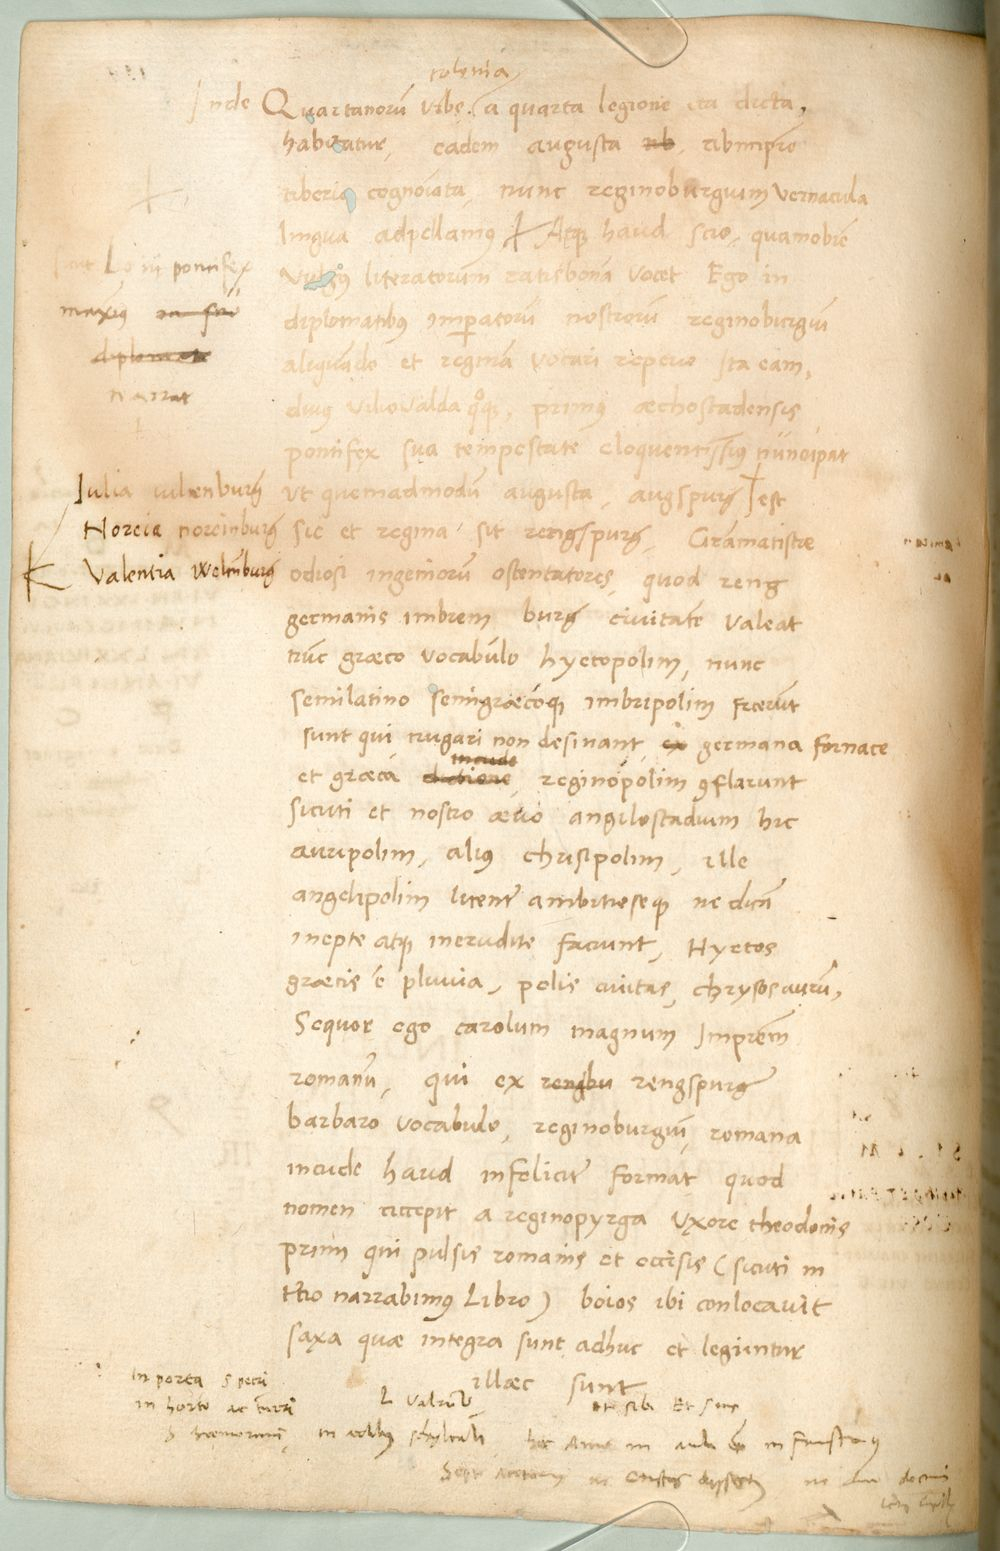 colonia
Inde Quartanorũ urbs a quarta legione ita dicta,
habitatur, eadem augusta ab
tiberio cognoĩata, nunc reginoburguum vernacula
lingua adpellamus Atq haud scio, quamobrẽ
vulgus literatorum ratisbonã vocet Ego in
diplomatibus imperatorũ nostrorũ reginoburgũ
aliquãdo et reginã vocari reperio Ita eam,
divus vilovalda quoq, primus æchostadensis
pontifex sua tempestate eloquentissĩus nũncupat
ut quemadmodũ augusta, augspurg est
sic et regina sit rengspurg, Grãmatistæ
odiosi ingeniorũ ostentatores, quod reng
germanis imbrem burg civitatẽ valeat
tũc græco vocabulo hyetopolim, nunc
semilatino semigræcoq imbripolim fecerũt
sunt qui nugari non desinant, ex germana fornace
incude
et græca, reginopolim cõflarunt
sicuti et nostro ævo angilostadium hic
auripolim, alius chrisipolim, ille
angelipolim licentẽ ambitioseq ne dicã
inepte atq inerudite faciunt, Hyetos
græcis ẽ pluvia, polis civitas, chrysos aurũ,
Sequor ego carolum magnum Imprẽm
romanũ, qui ex rengbu rengspurg
barbaro vocabulo, reginoburgũ romana
incude haud infeliciẽ format quod
nomen accepit a reginopyrga uxore theodonis
primi qui pulsis romanis et occisis (sicuti in
tertio narrabimus Libro) boios ibi conlocavit
saxa quæ integra sunt adhuc et legiuntur
illæc sunt
pontifex
maxĩus
diplomate
narrat
Iulia iulienburg
Noreia noreinburg
Valentia Welenburg
In porta S petri
in horto